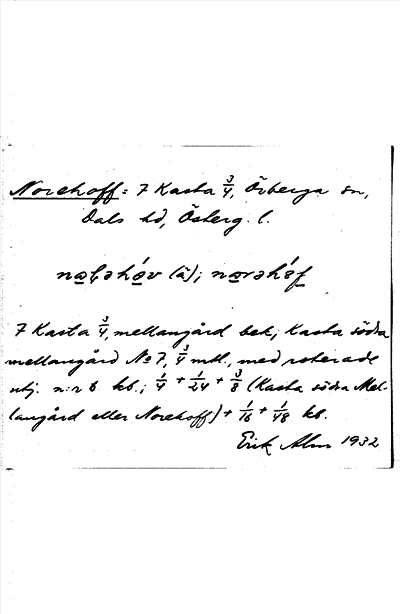 Norehoff = 7 Kasta 3/4, Örberga sn,
Dals hd, Österg. l.
(ä);
7 Kasta 3/4, mellangård bet; Kasta södra
mellangård No 7, 3/4 mtl., med roterade
utj. n:r 6 kb.; 1/4 + 1/24 + 3/8 (Kasta södra Mel-
langård eller Norehoff) + 1/16 + 1/48 kb.
Erik Alm 1932